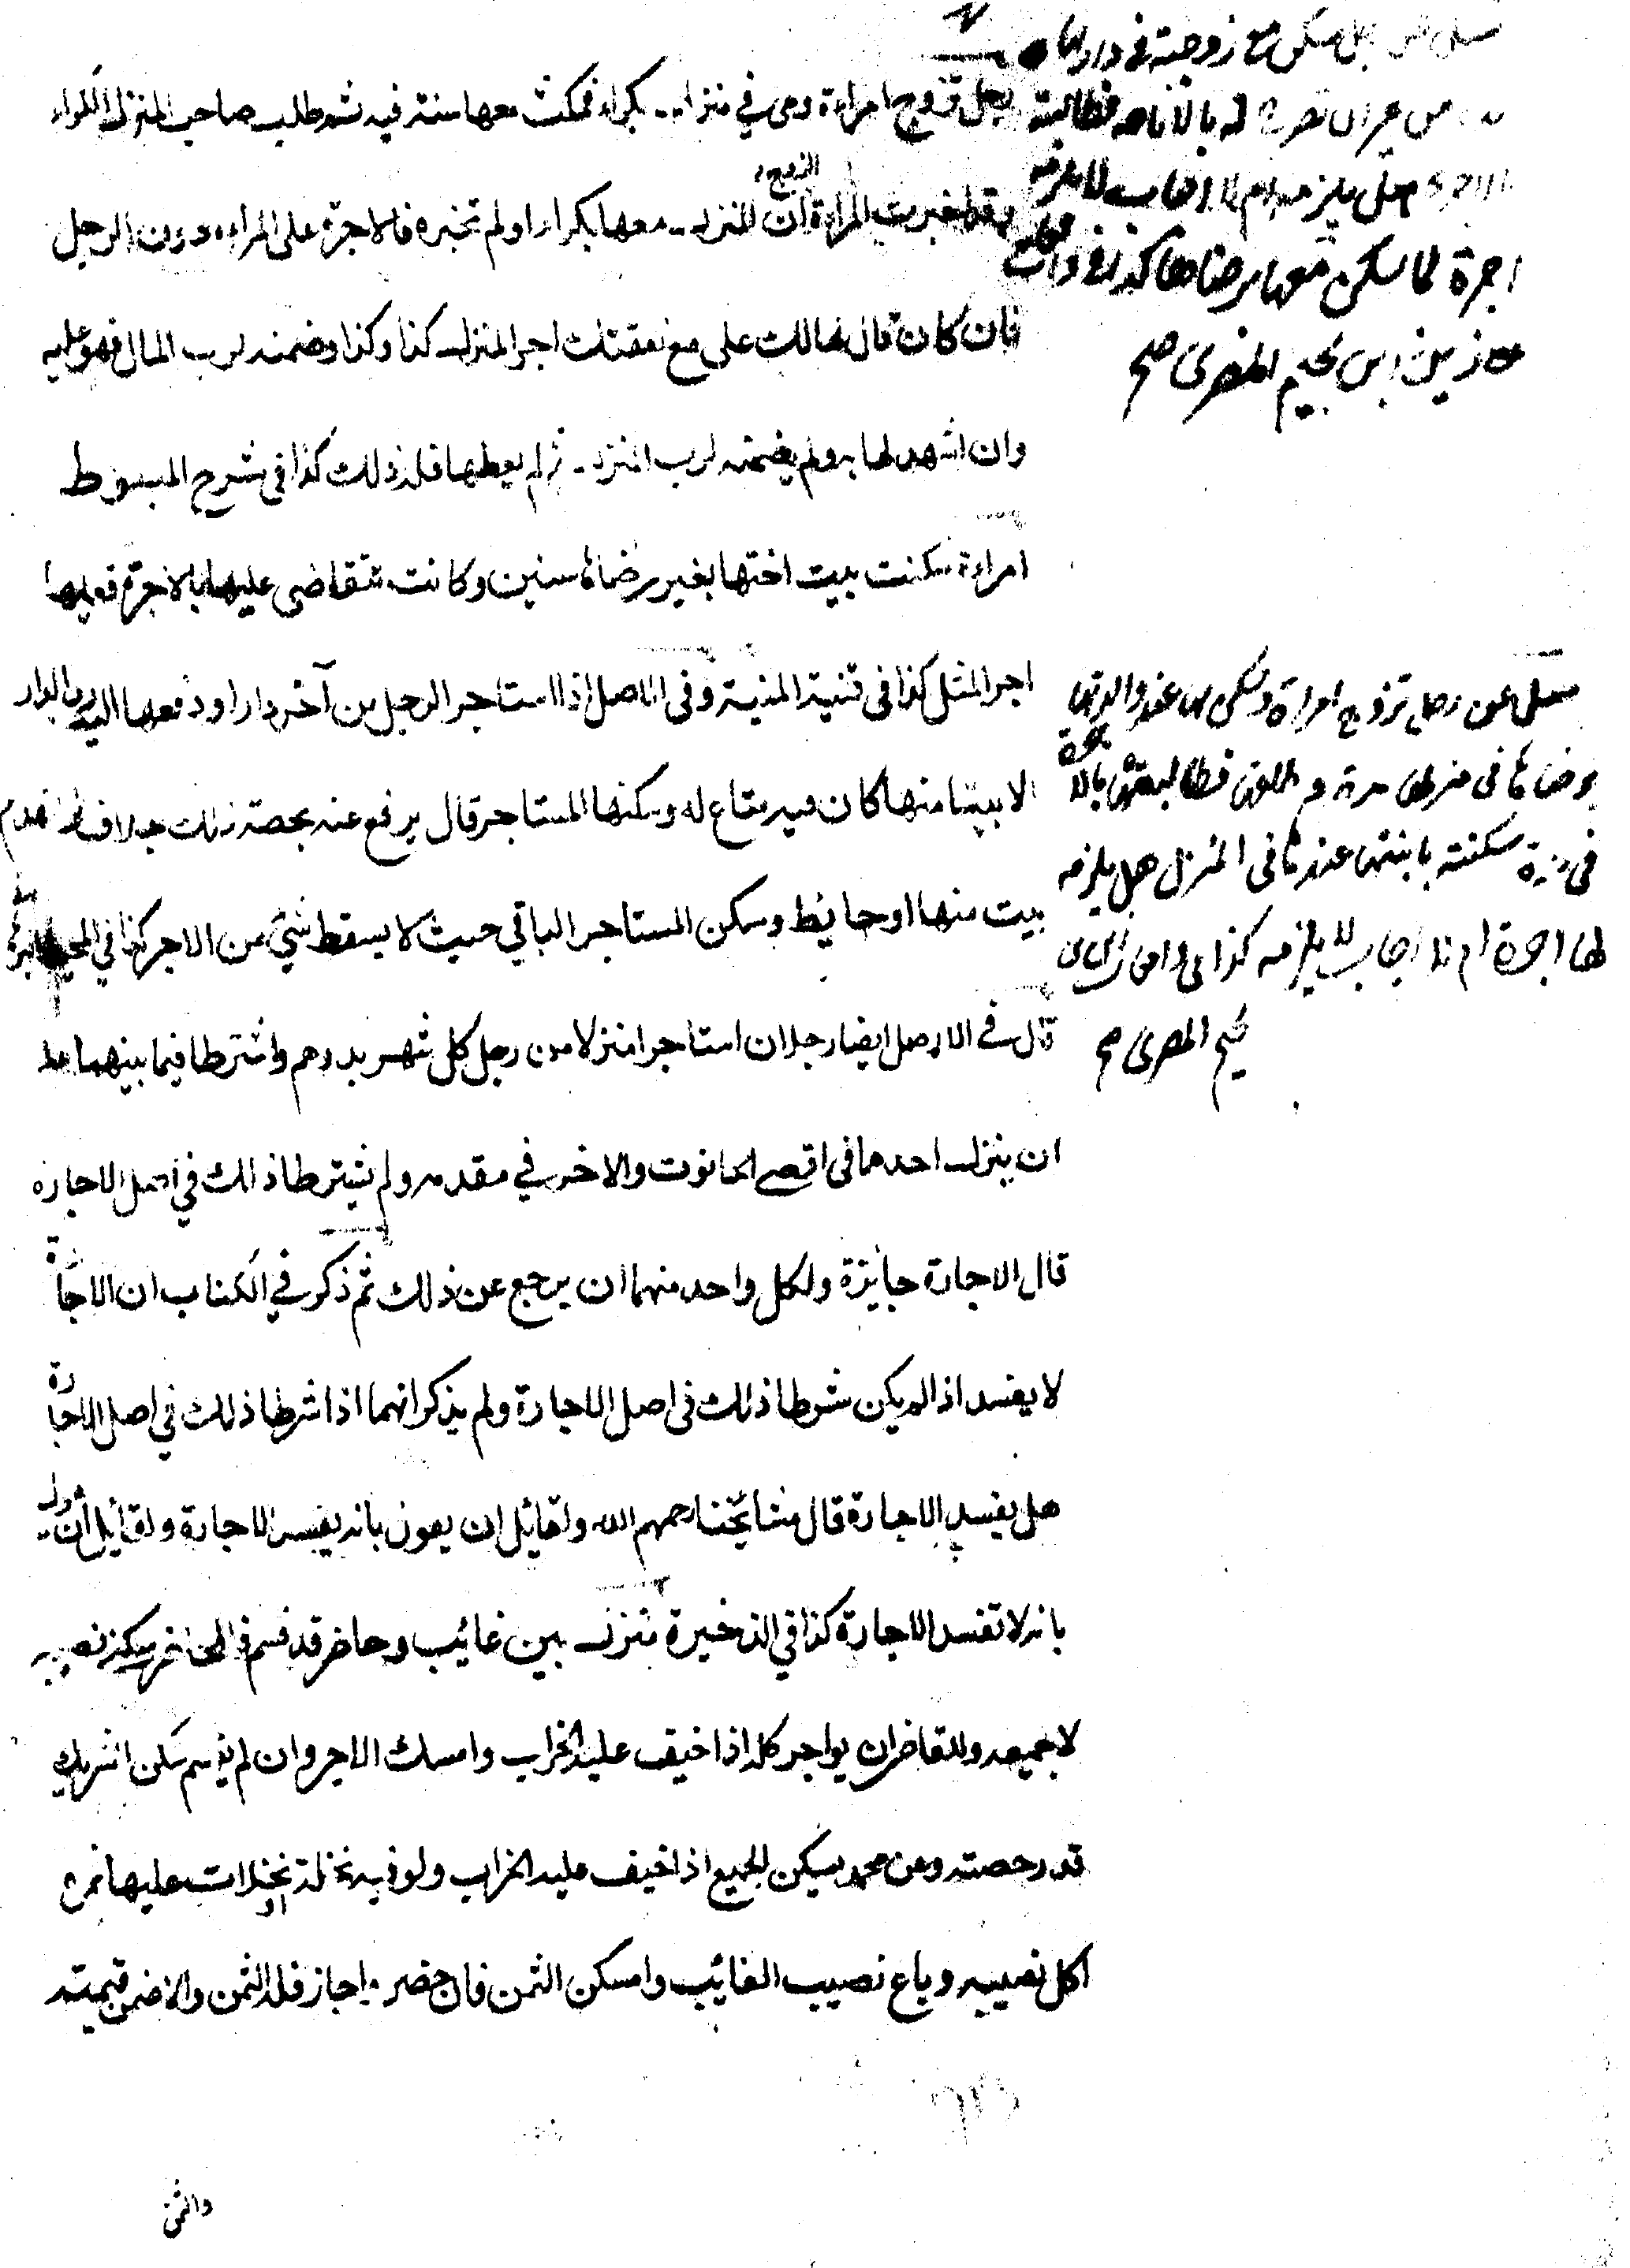 رجل تزوج امراءة وهى في منزل بكراء فمكث معها سنة فيه ثم طلب صاحب المنزل الكراء
وقد اخبرت المراءة الزوج ان المنزل معها بكراء او لم تخبره فالاجرة على المراءه دون الرجل
فان كان قال لها لك على مع نفقتك اجر المنزل كذا وكذا وضمنه لرب المال فهو عليه
وان اشهد لها به ولم يضمنه لرب المنزل ثم لم يعطها فله ذلك كذا فى شرح المبسوط
امراءة سكنت بيت اختها بغير رضاها سنين وكانت تتقاضى عليها بالاجرة فعليها
اجر المثل كذا فى قنية المنية وفى الاصل اذا استاجر الرجل من آخر دارا ودفعها اليه رب الدار
الا بيتا منها كان فيه متاع له وسكنها المستاجر قال يرفع عنه بحصة ذلك بخلاف ما لو انهدم
بيت منها او حايط وسكن المستاجر الباقي حيث لا يسقط شيء من الاجر كذا في
قال في الاصل ايضا رجلان استاجرا منزلا من رجل كل شهر بدرهم واشترطا فيما بينهما
ان ينزل احدهما فى اقصى الحانوت والاخر في مقدمه ولم يشترطا ذلك في اصل الاجاره
قال الاجارة جايزة ولكل واحد منهما ان يرجع عن ذلك ثم ذكر في الكتاب ان الاجارة
لا يفسد اذا لم يكن شرطا ذلك فى اصل الاجارة ولم يذكر انهما اذا شرطا ذلك في اصل الاجارة
هل يفسد الاجارة قال مشائخنا رحمهم الله ولقائل ان يقول بانه يفسد الاجارة ولقائل ان يقول
بانه لا تفسد الاجارة كذا في الذخيرة منزل بين غائب وحاضر قد قسم فالحاضر يسكن نصيبه
لا جميعه وللقاضى ان يواجر كله اذا خيف عليه الخراب وامسك الاجر وان لم يقسم سكن الشريك
قدر حصته وعن محمد يسكن الجميع اذا خيف عليه الخراب ولو فيه نخلة او نخلات عليها ثمره
اكل نصيبه وباع نصيب الغائب وامسكن الثمن فان حضر واجاز فله الثمن والا ضمن قيمته
والثمن
مع زوجته فى دار
له بالاقامه فطالبته
هل يلزمه ام لا اجاب لا يلزمه
اجرة لما سكن معها برضاها كذا فى فتاوى
زين ابن نجيم المصرى صح
سئل عن رجل تزوج امراءة وسكن بها عند والدتها
برضاها فى منزلها مدة ثم طلقها فطالبته بالاجرة
فى مدة سكنته بابنتها عندها فى المنزل هل يلزمه
لها اجرة ام لا اجاب لا يلزمه كذا فى فتاوى زين ابن
نجيم المصرى صح